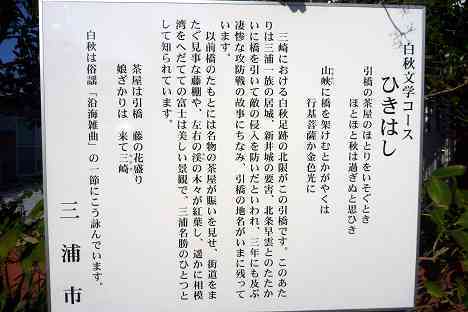 白秋文学コース
ひきはし
引橋の茶屋のほとりをいそぐとき
ほとほと秋は過ぎぬと思ひき
山峡に橋を架けむとかがやくは
行基菩薩か金色光に
三崎における白秋足跡の北限がこの引橋です。このあた
りは三浦一族の居城、新井城の要害、北条早雲とのたたか
いに橋を引いて敵の侵入を防いだといわれ、三年にも及ぶ
凄惨な攻防戦の故事にちなみ、引橋の地名がいまに残って
います。
以前橋のたもとには名物の茶屋が賑いを見せ、街道をま
たぐ見事な藤棚や、左右の渓の木々が紅葉し、遥かに相模
湾をへだてての富士は美しい景観で、三浦名勝のひとつと
して知られています。
茶屋は引橋 藤の花盛り
娘ざかりは 来て三崎
白秋は俗謡「沿海雑曲」の一節にこう詠んでいます。
三浦市